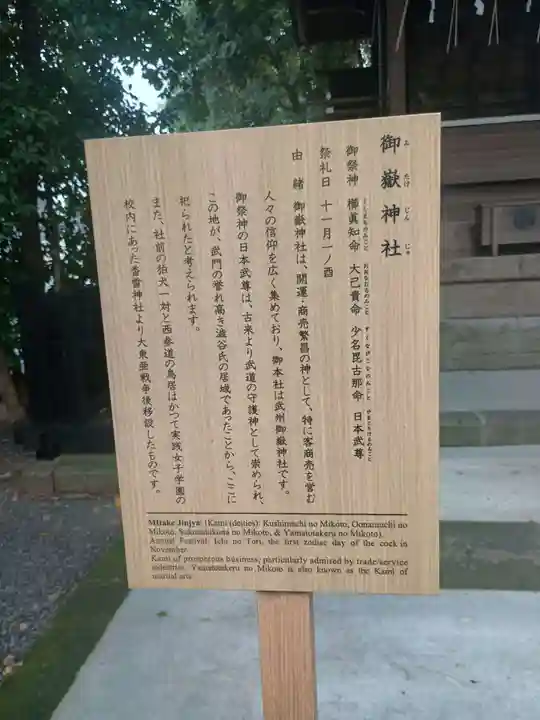 御嶽神社
みたけじんじゃ
御祭神 櫛眞知命 大己貴命 少名毘古那命 日本武尊
祭礼日 十一月一ノ酉
由緒 御嶽神社は、開運・商売繁昌の神として、特に客商売を営む
人々の信仰を広く集めており、御本社は武州御嶽神社です。
御祭神の日本武尊は、古来より武道の守護神として崇められ、
この地が、武門の誉れ高き澁谷氏の居城であったことから、ここに
祀られたと考えられます。
また、社前の狛犬一対と西参道の鳥居はかつて実践女子学園の
校内にあった香雪神社より大東亜戦争後移設したものです。
Mitake Jinjya: (Kami (deities): Kushimachi no Mikoto, Oonamuchi no
Mikoto, Sukunahikona no Mikoto, & Yamatotakeru no Mikoto).
Annual Festival: Ichi no Tori, the first zodiac day of the cock in
November.
Kami of prosperous business, particularly admired by trade/service
industries. Yamatotakeru no Mikoto is also known as the Kami of
martial arts.